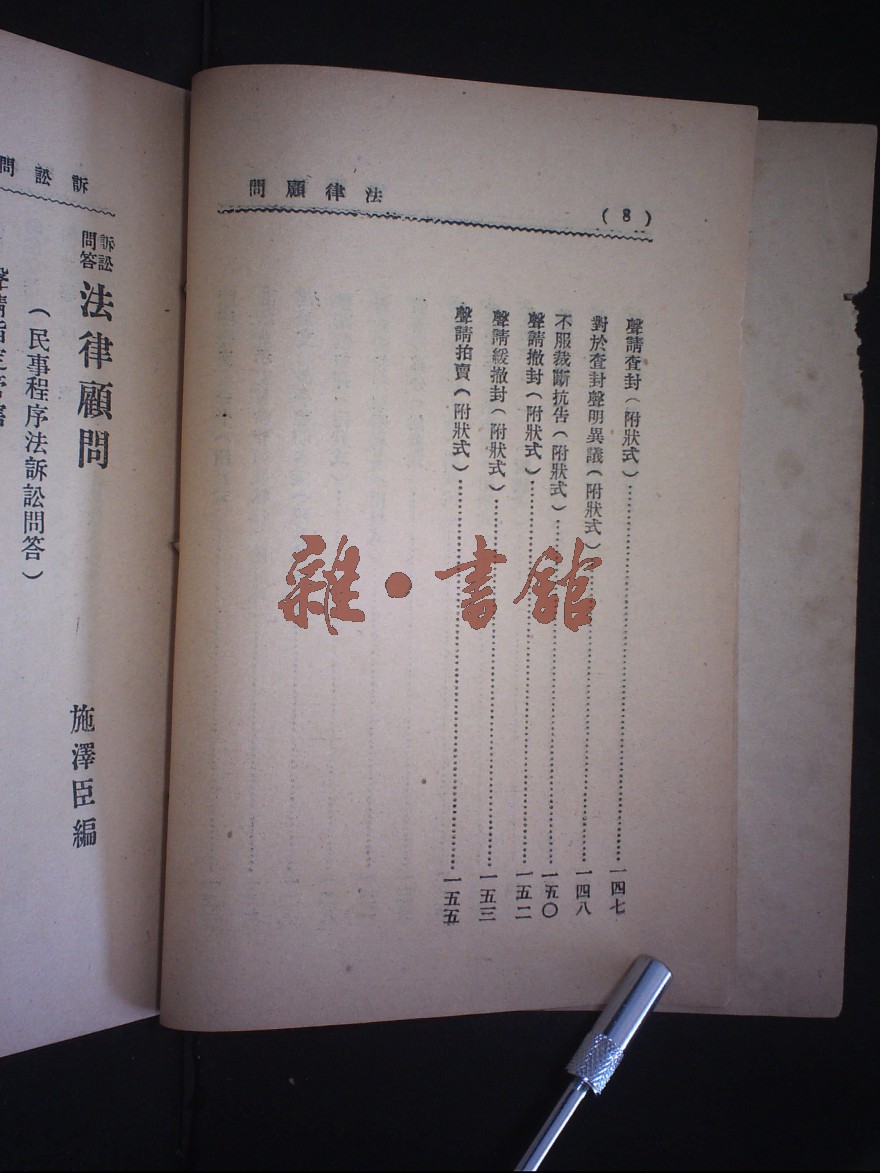 法律顧問
(8)
聲請查封(附狀式)……一四七
對於查封聲明異議(附狀式)……一四八
不服裁斷抗告(附狀式)……一五〇
聲請撤封(附狀式)……一五二
聲請緩撤封(附狀式)……一五三
聲請拍賣(附狀式)……一五五
訴訟問
訴訟問答
法律顧問
施澤臣編
(民事程序法訴訟問答)
雜·書館